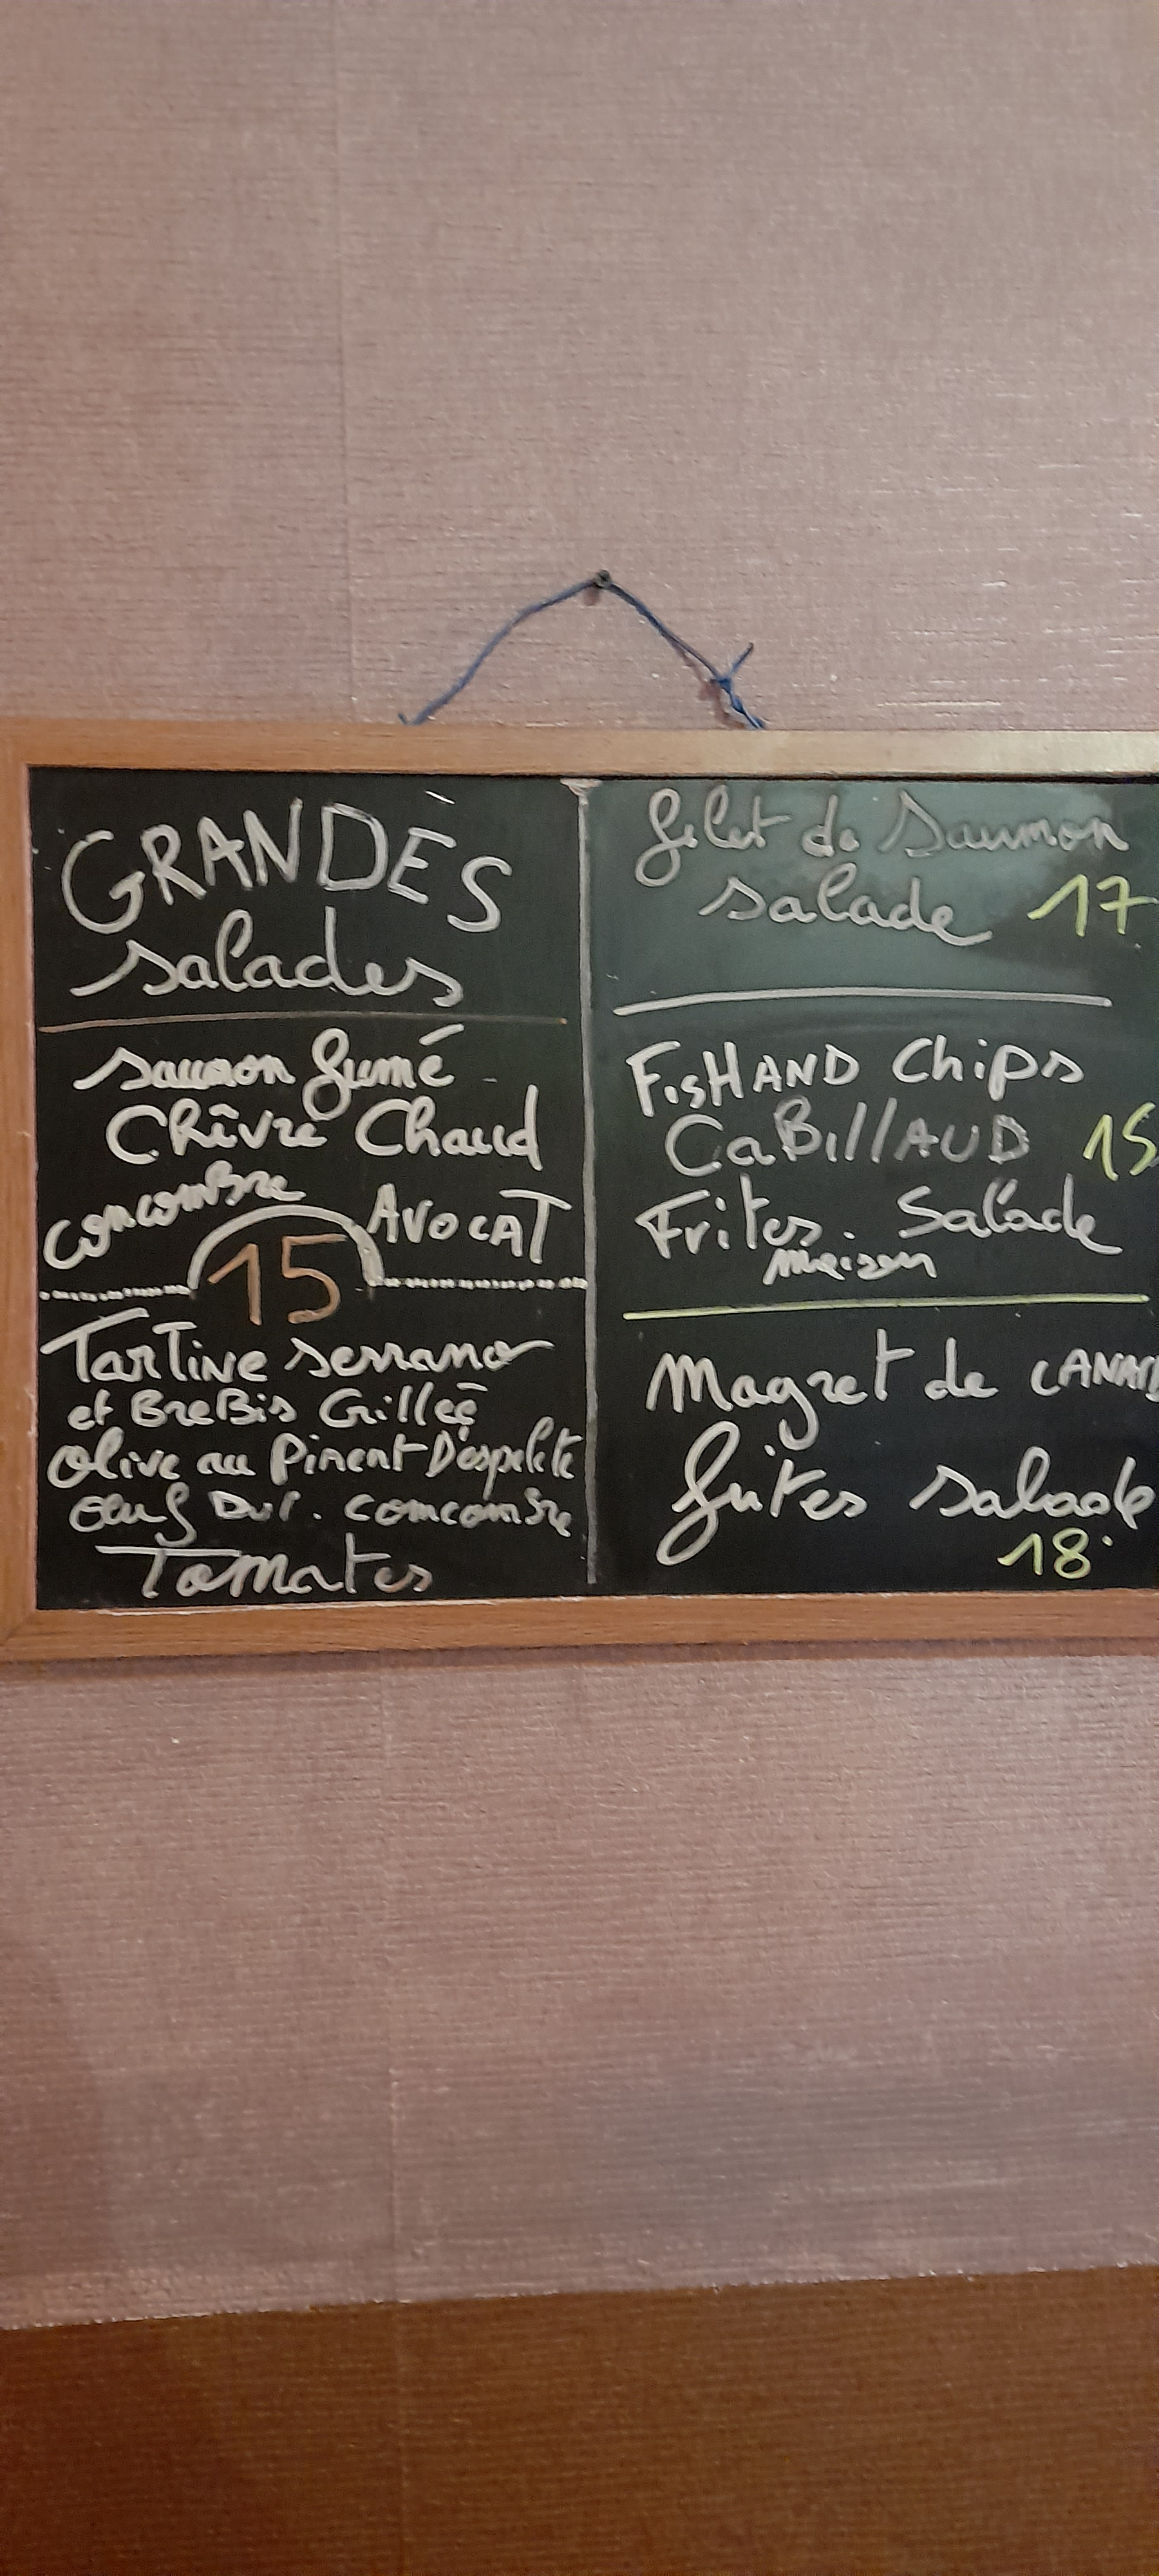 GRANDES
salades
saumon fumé
Chèvre Chaud
concombre AVOCAT
15
TarTine serrano
et BreBis Grillée
Olive au Piment D'espelette
Oeuf Dur. concombre
Tomates
filet de Saumon
salade 17
FisHAND Chips
CaBillAUD 15
Frites. Salade
maison
Magret de CANARD
frites salade
18